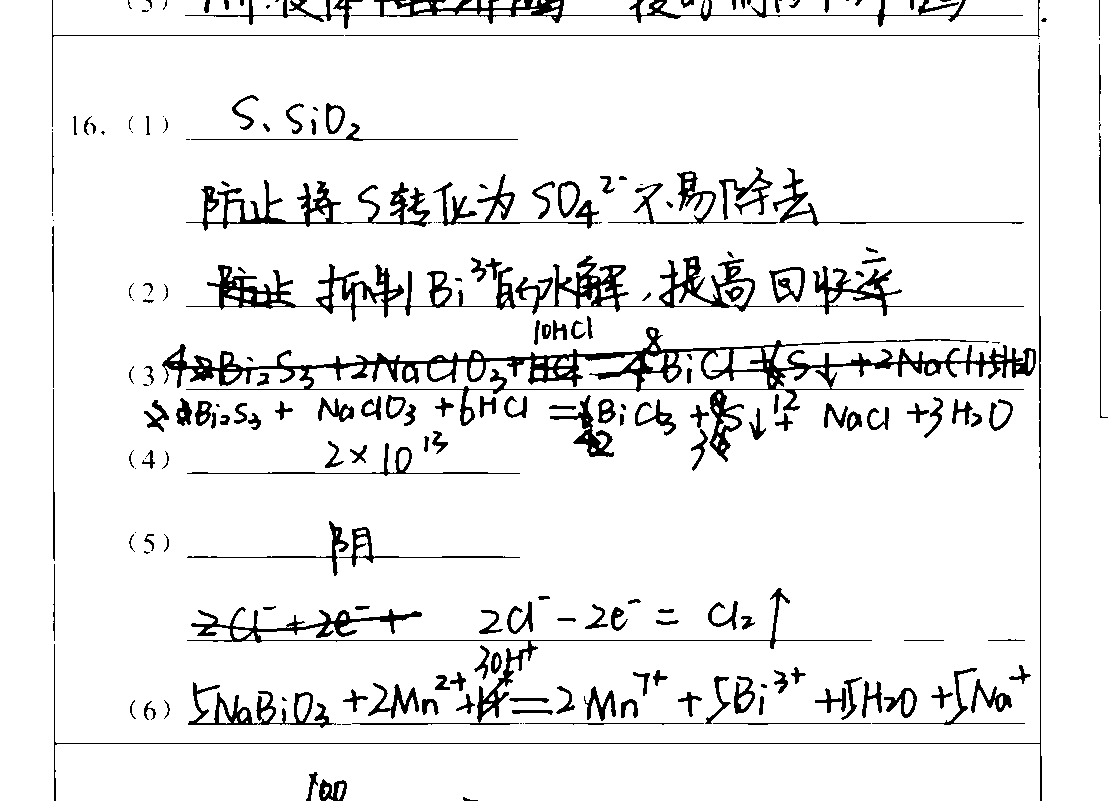 (3)
16.(1) S、SiO₂
防止将 S转化为 SO₄²⁻不易除去
(2) 防止 抑制Bi³⁺的水解,提高回收率
10HCl
(3) Bi₂S₃ + 2NaClO₃ + HCl = BiCl S↓ + 2NaCl
Bi₂S₃ + NaClO₃ + 6HCl = 2BiCl₃ + 3S↓ + NaCl + 3H₂O
(4) 2×10¹³
(5) 阴
2Cl⁻ + 2e⁻ + 2Cl⁻ - 2e⁻ = Cl₂↑
30H⁺
(6) 5NaBiO₃ + 2Mn²⁺ + H⁺ = 2Mn⁷⁺ + 5Bi³⁺ + 15H₂O + 5Na⁺
100